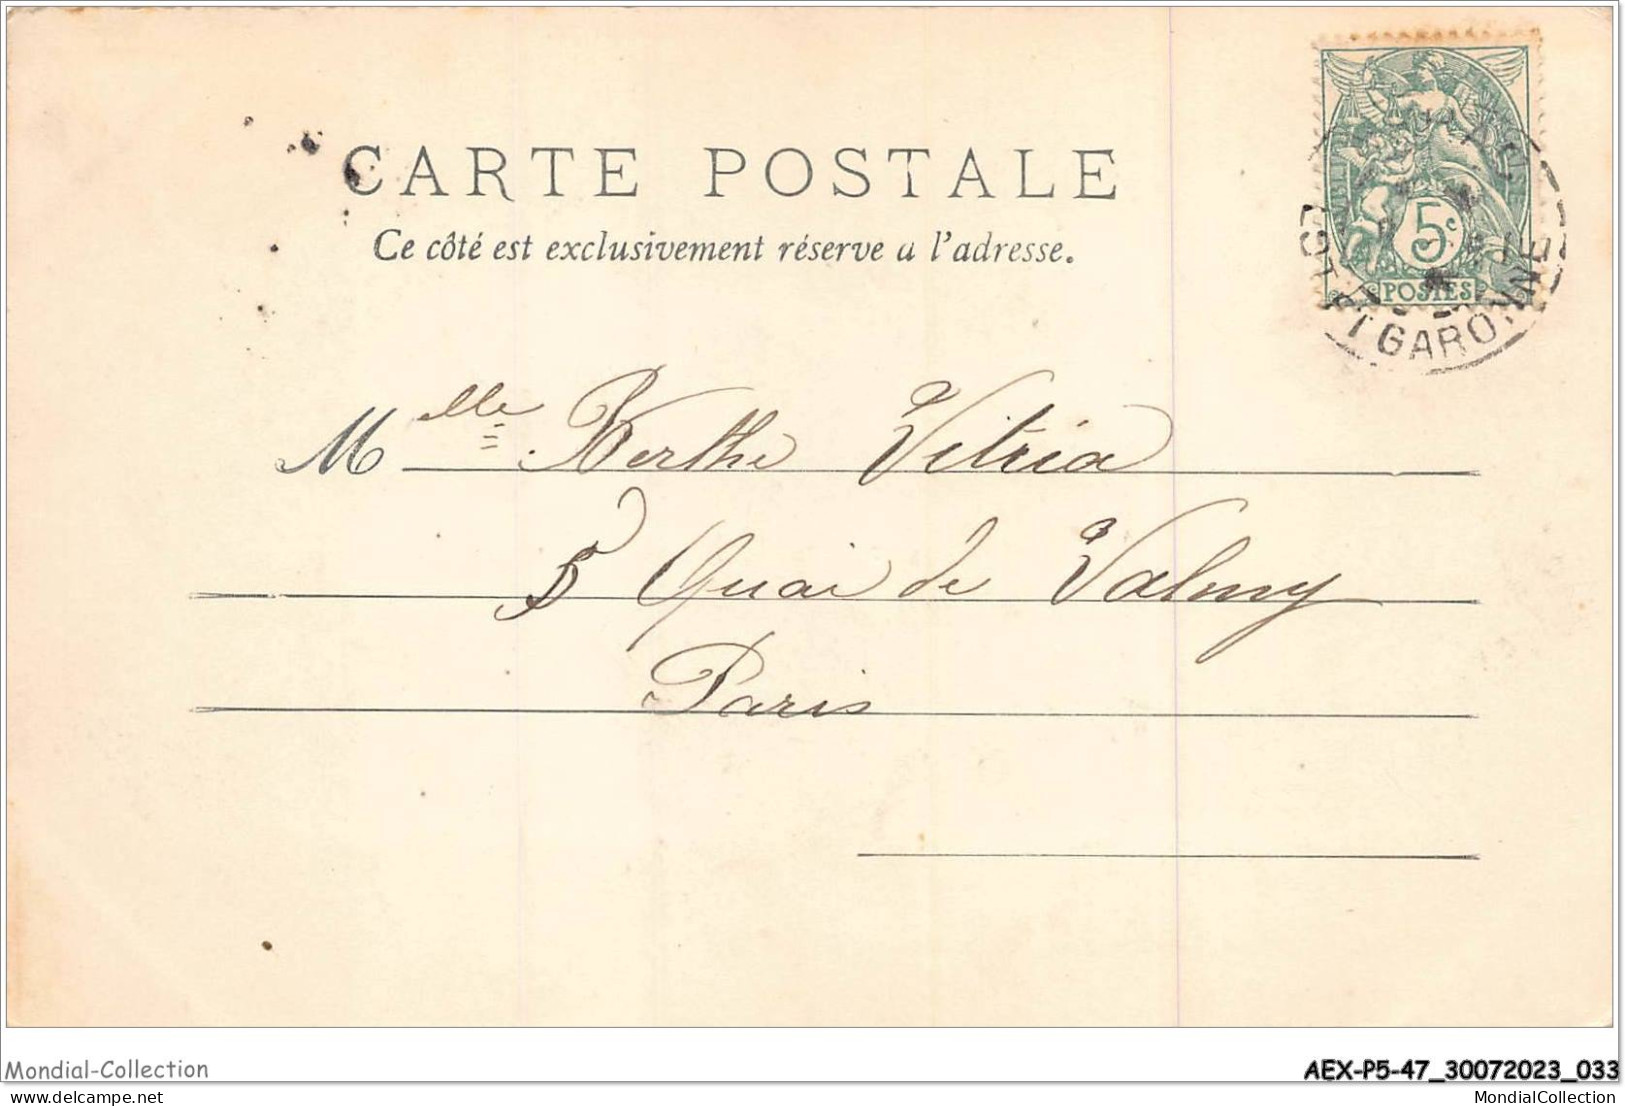 CARTE POSTALE
Ce côté est exclusivement réservé a l'adresse.
5c
POSTES
LOT ET GARONNE
Mlle Berthe Vitria
5 Quai de Valmy
Paris
Mondial-Collection
AEX-P5-47_30072023_033
delcampe.net
MondialCollection